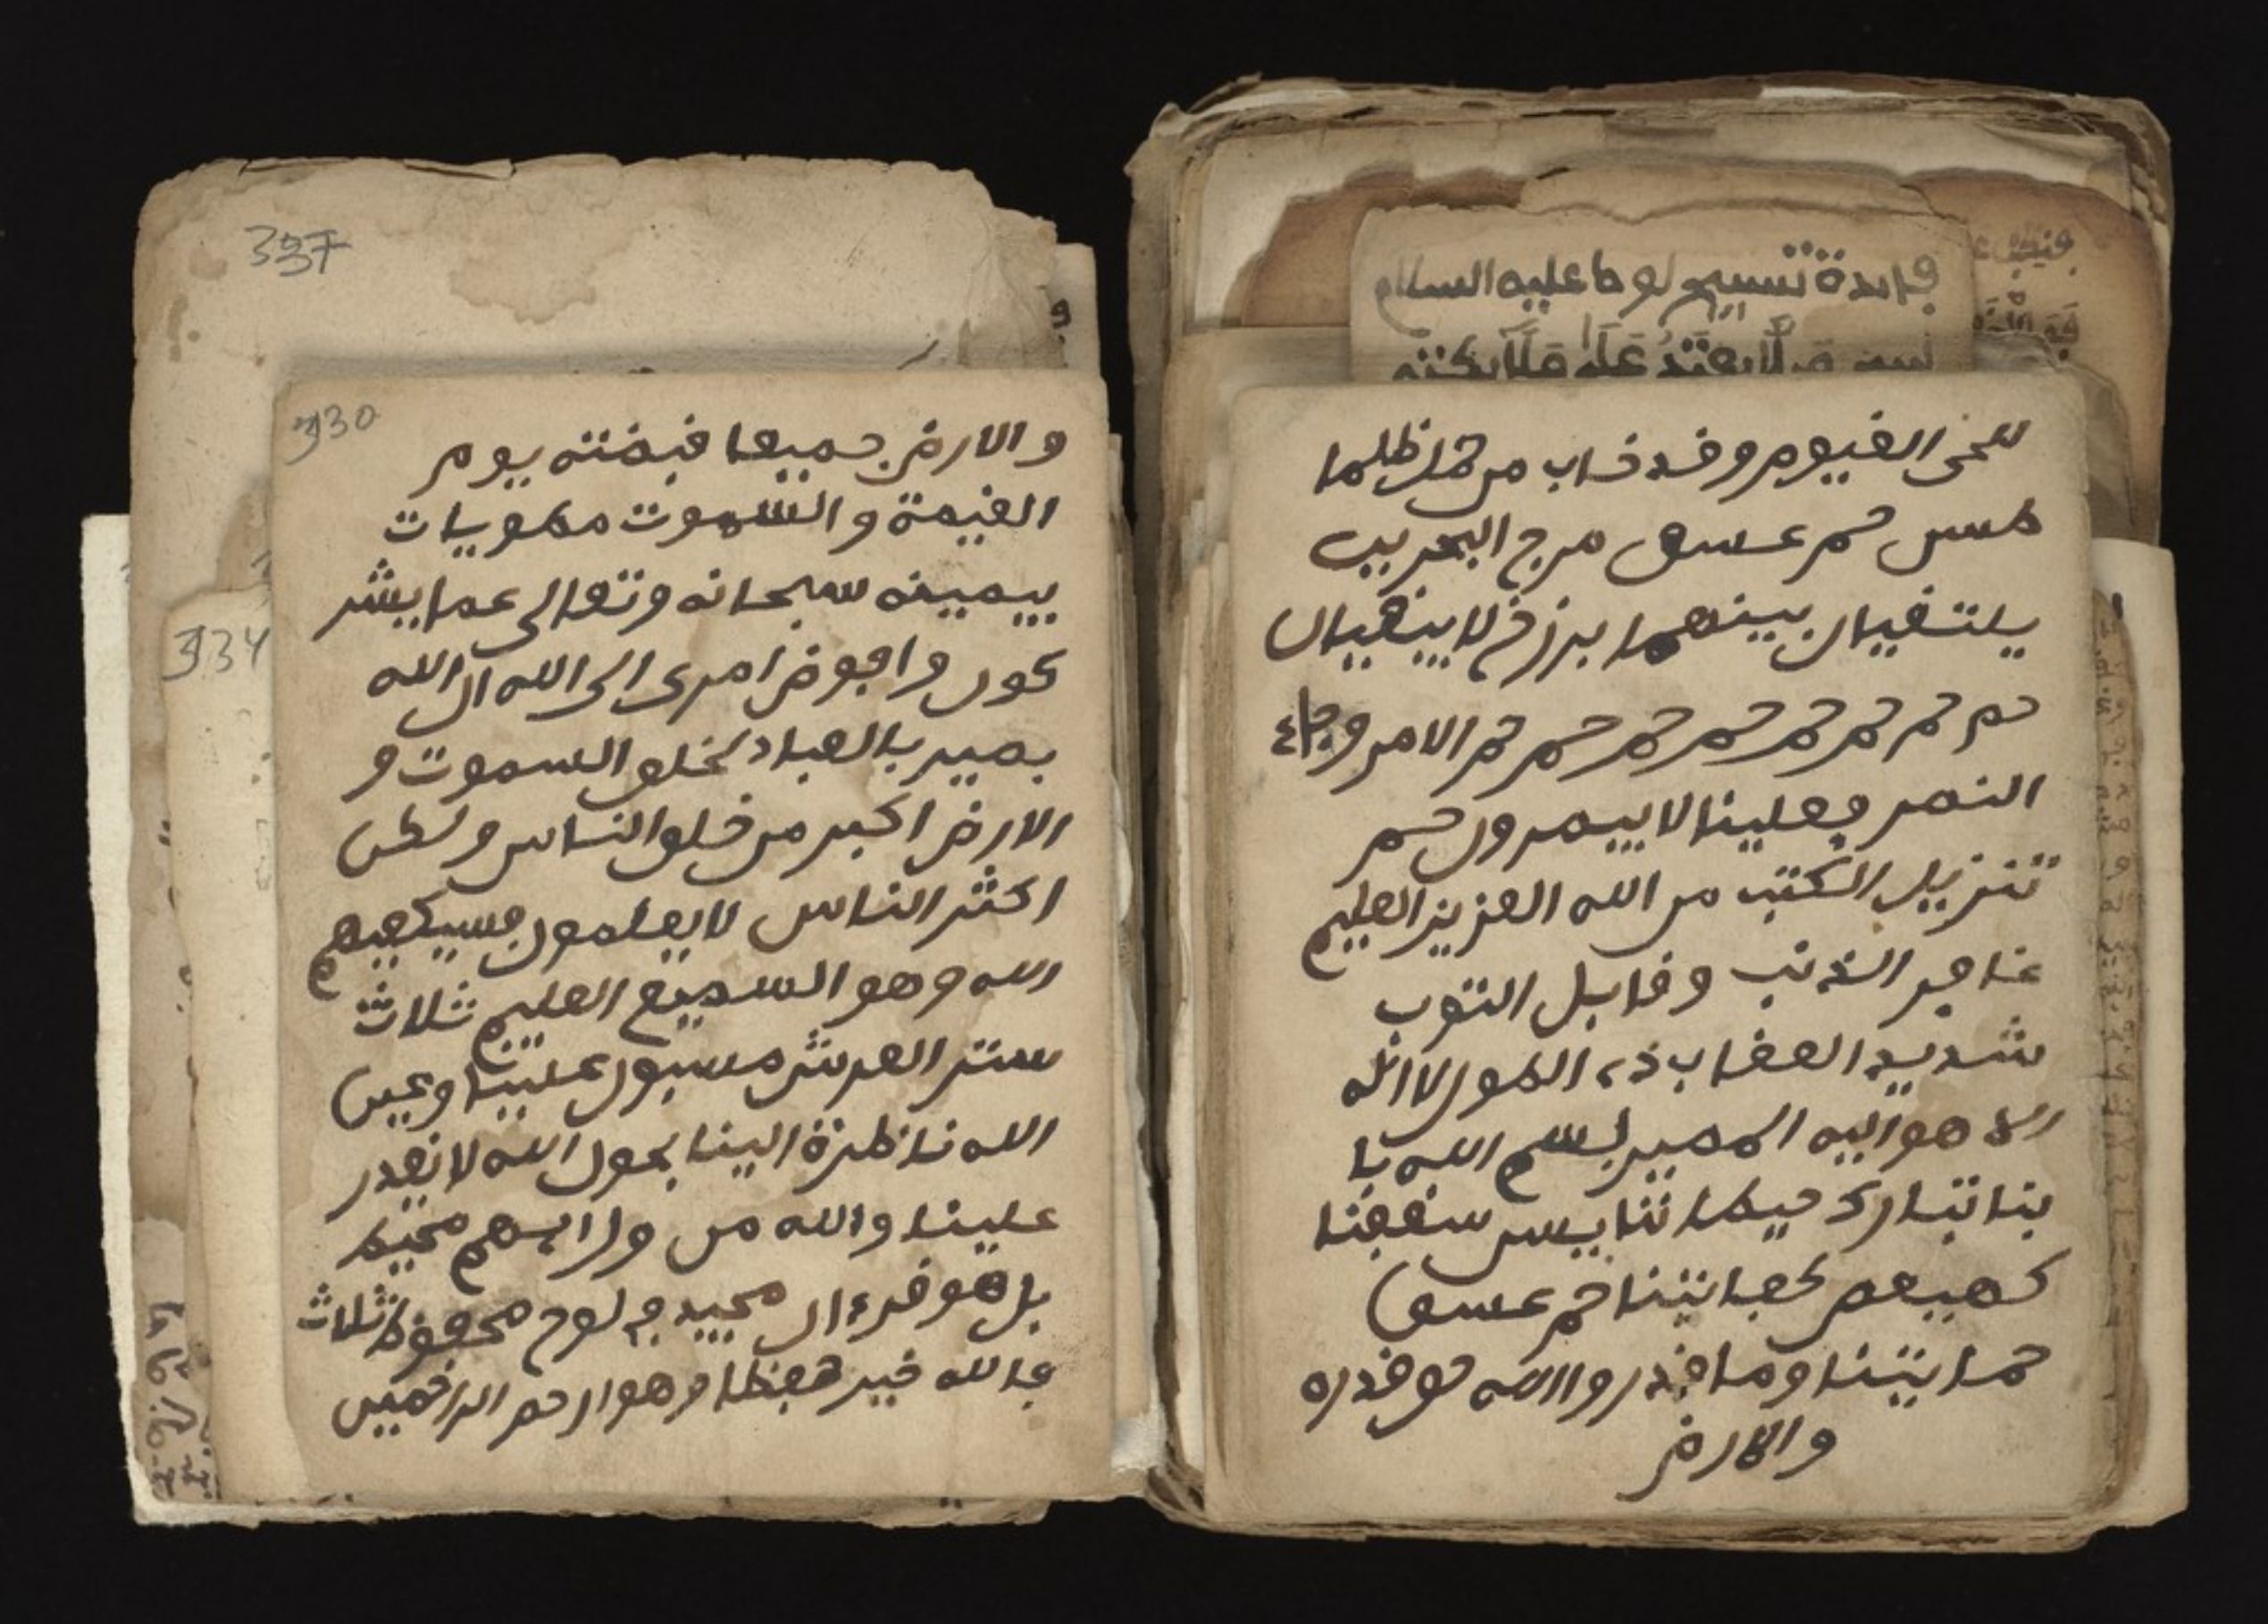 فايدة تسبيح لوط عليه السلام
للحى القيوم وقد خاب من حمل ظلما
طس حم عسق مرج البحرين
يلتقيان بينهما برزخ لا يبغيان
حم حم حم حم حم حم حم حم الامر وجاء
النصر فعلينا لا ينصرون حم
تنزيل الكتب من الله العزيز العليم
غافر الذنب وقابل التوب
شديد العقاب ذى الطول لا اله
الا هو اليه المصير بسم الله با
بنا تبارك حيطاننا يس سقفنا
كهيعص كفايتنا حم عسق
حمايتنا وما قدروا الله حق قدره
والارض
337
330
334
والارض جميعا قبضته يوم
القيمة والسموت مطويات
بيمينه سبحانه وتعالى عما يشر
كون وافوض امرى الى الله ان الله
بصير بالعباد لخلق السموت و
الارض اكبر من خلق الناس ولكن
اكثر الناس لا يعلمون فسيكفيكهم
الله وهو السميع العليم ثلاث
ستر العرش مسبول علينا وعين
الله ناظرة الينا بحول الله لا يقدر
علينا والله من ورايهم محيط
بل هو قرءان مجيد فى لوح محفوظ ثلاث
فالله خير حفظا وهو ارحم الراحمين